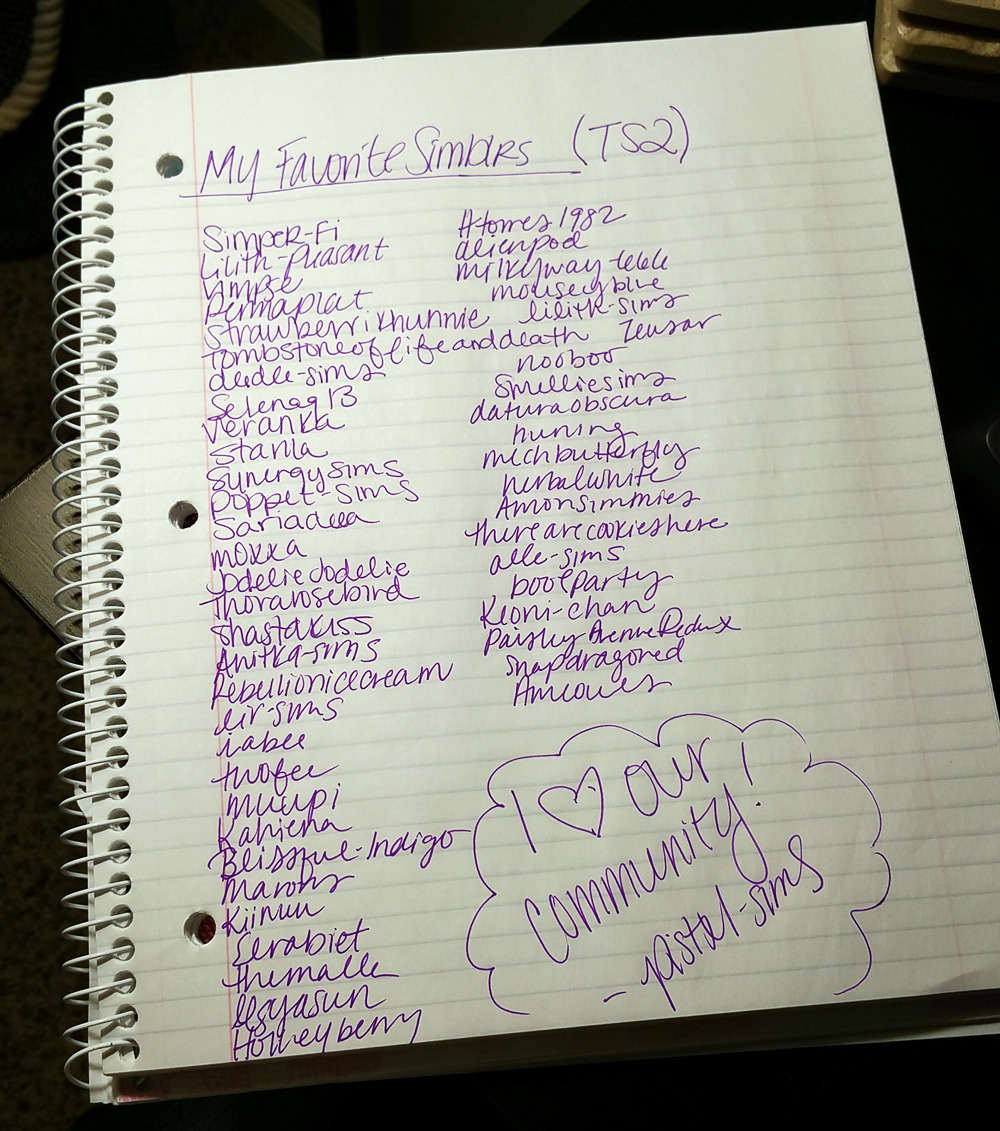 My Favorite Simblrs (TS2)
Simper-Fi
Lilith-Pleasant
Permaplat
strawberrikhunnie
Tombstoneoflifeanddeath
deedee-sims
Selenag13
Veranka
Starila
synergysims
poppet-sims
Sariadeea
moxxa
JodelieJodelie
Thorarosebird
shastakiss
Anitka-sims
Rebellionicecream
eir-sims
iabee
twofee
muupi
Kahlena
Blissful-Indigo
Kiimuu
Serabiet
themalle
Honeyberry
Htorres1982
alienpod
milkyway-tele
mouseyblue
lilith-sims
Zeusar
nooboo
Smelliesims
daturaobscura
huning
mechbutterfly
herbalwhite
Amonsimmies
therearecookieshere
alle-sims
poolparty
Keoni-chan
Paisley Avenue Redux
snapdragored
I ♡ our
community!
- pistal-sims